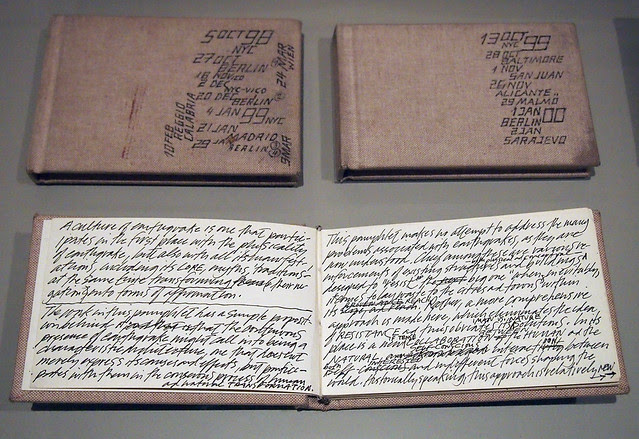 5 OCT 98
NYC
27 OCT
BERLIN
16 NOV
VICO
2 DEC
NYC-VICO
20 DEC
BERLIN
4 JAN 99 NYC
21 JAN
MADRID
29 JAN
BERLIN
24 MAR
WIEN
9 MAR
10 FEB
REGGIO
CALABRIA
13 OCT 99
NYC
28 OCT
BALTIMORE
1 NOV
SAN JUAN
26 NOV
ALICANTE
29 MALMO
1 JAN 00
BERLIN
2 JAN
SARAJEVO
A culture of earthquake is one that partici-
pates in the first place with the physicality
of earthquake, but also with all its manifest-
ations, including its LORE, myths, traditions
at the same time transforming their ne-
gations into terms of affirmation.
The work in this pamphlet has a simple proposit-
ion behind it that the continuous
presence of earthquake might call into being a
characteristic architecture, one that does not
merely express its causes and effects, but partici-
pates with them in the conscious process of human
and natural TRANSFORMATION.
This pamphlet makes no attempt to address the many
problems associated with earthquakes, as they are
now understood. Chief among these are various re-
inforcements of existing structures and buildings
designed to resist when, inevitably,
it comes to lay waste to the cities and towns within
its Rather, a more comprehensive
approach is made here, which eliminates the idea
of RESISTANCE and thus obviates In its
place is a more COLLABORATION of the HUMAN and the
NATURAL interaction between
and indifferent forces shaping the
world. Historically speaking, this approach is relatively new